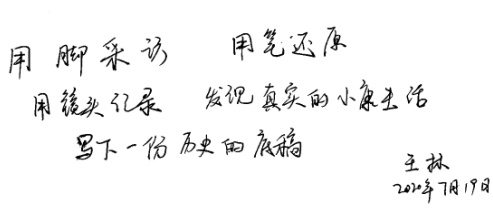 用脚采访 用笔还原
用镜头记录 发现真实的小康生活
写下一份历史的底稿
王林
2020年7月19日